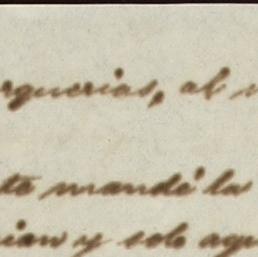 rquerias, al
te mandé la
ian y solo aqu